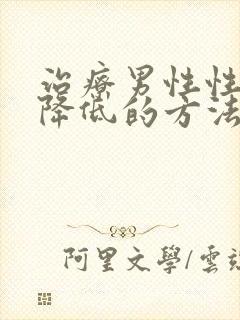 治療男性性
降低的方法
阿里文學/雲